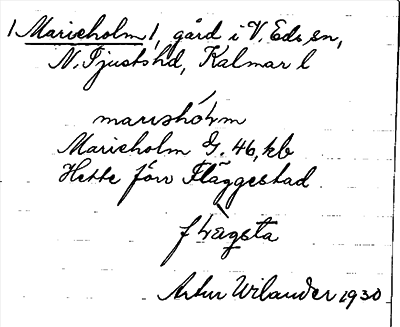 / Marieholm /, gård i V. Eds sn,
N. Tjusts hd, Kalmar l
Marieholm G. 46, kb
Hette förr Fläggestad
Artur Wilander 1930